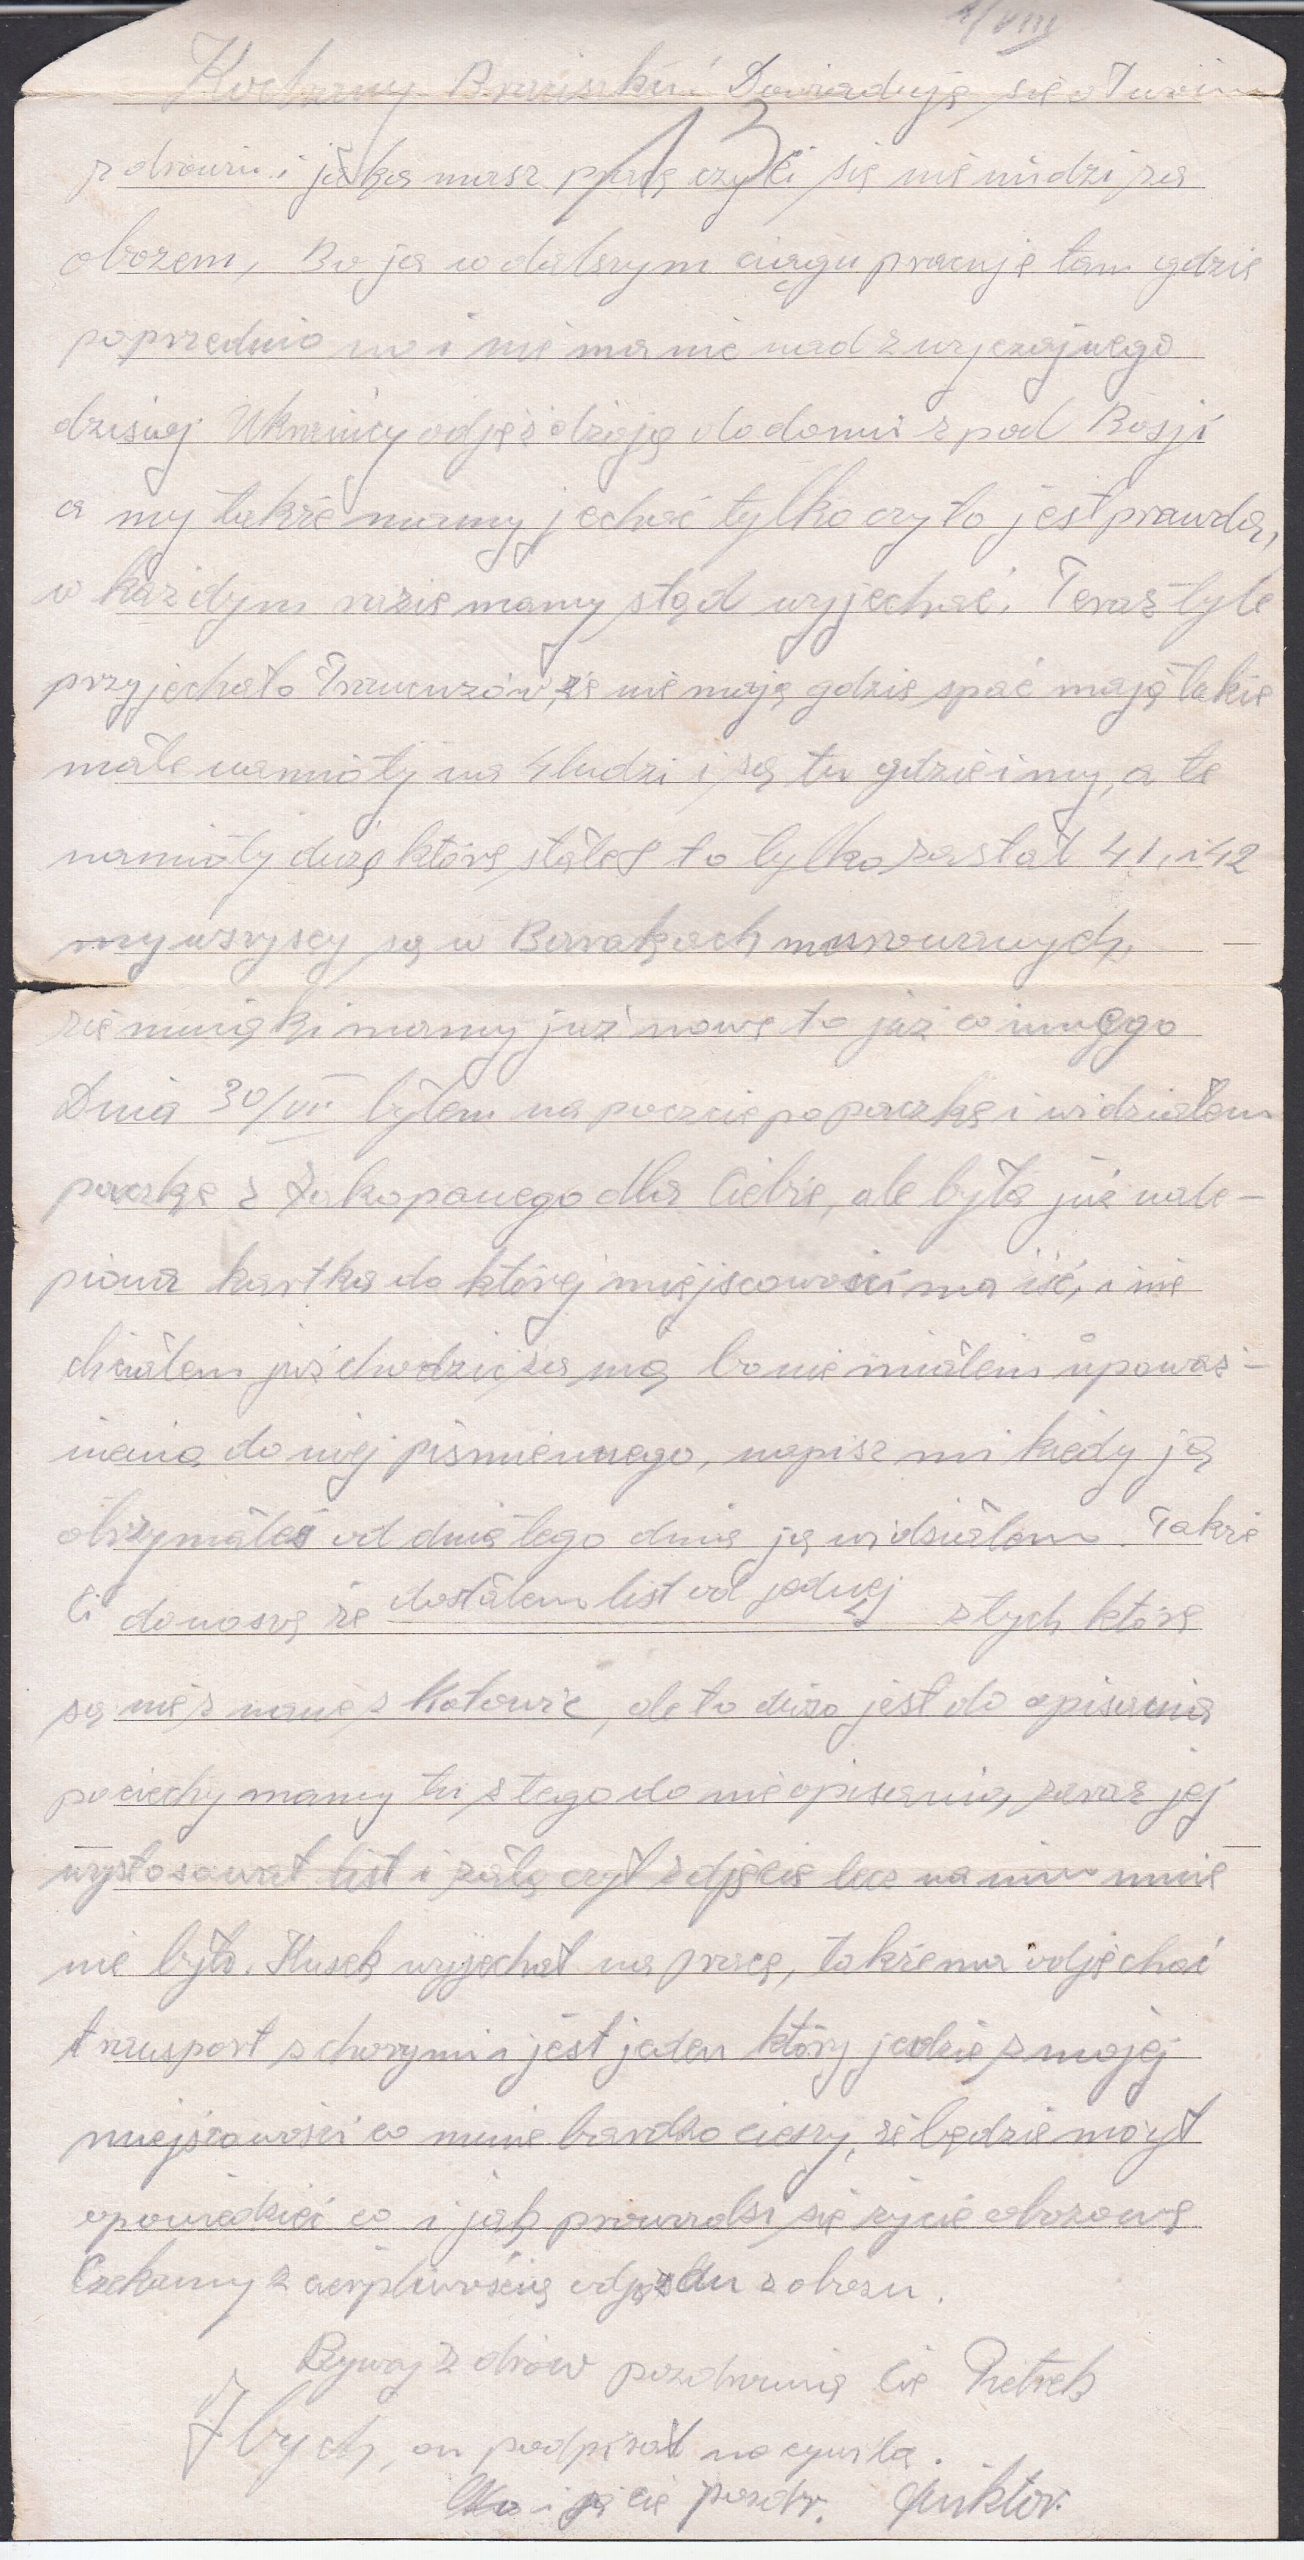 1/VIII
Kochany Braciszku! Dowiaduję się o Twoim
13
zdrowiu i jaką masz pracę czyli się nie nudzi za
obozem, Bo ja w dalszym ciągu pracuję tam gdzie
poprzednio no i nie ma nic nadzwyczajnego
dzisiaj Ukraińcy odjeżdżają do domu z pod Rosji
a my także mamy jechać tylko czy to jest prawda,
w każdym razie mamy stąd wyjechać. Teraz tyle
przyjechało Francuzów, że nie mają gdzie spać mają takie
małe namioty na 4 ludzi i są tu gdzie i my, a te
namioty duże które stałeś to tylko został 41, i 42
my wszyscy są w Barakach murowanych,
ziemniaki mamy już nowe to już co innego
Dnia 30/VII byłem na poczcie po paczkę i widziałem
paczkę z Zakopanego dla Ciebie, ale była już nale-
piona kartka do której miejscowości ma iść, i nie
chciałem już chodzić za nią bo nie miałem upoważ-
nienia do niej piśmiennego, napisz mi kiedy ją
otrzymałeś od dnia tego dnia ją widziałem. Także
Ci donoszę że dostałem list od jednej z tych które
są nie znane z Katowic, ale to dużo jest do opisania
pociechy mamy tu z tego do nieopisania, zaraz jej
wystosował list i załączył zdjęcie lecz na nim mnie
nie było. Husek wyjechał na pracę, także ma odjechać
transport z chorymi i jest jeden który jedzie z mojej
miejscowości co mnie bardzo cieszy, że będzie mógł
opowiedzieć co i jak prowadzi się życie obozowe
Czekamy z cierpliwością odjazdu z obozu.
Bywaj zdrów pozdrawia Cię Pietrek
Zbych, on podpisał na cywila.
i ja cię pozdr. Wiktor.